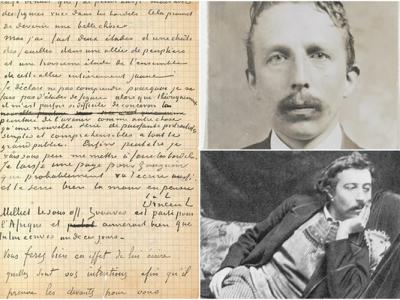 des figures vues dans les bordels. Cela promet
de devenir une belle chose.
Moi j'ai fait deux études d'une chute
des feuilles dans une allée de peupliers
et une troisième étude de l'ensemble
de cette allée entièrement jaune.
Je déclare ne pas comprendre pourquoi je ne
fais pas d'études de figure alors que théoriquement
il m'est parfois si difficile de concevoir la
peinture de l'avenir comme autre chose
qu'une nouvelle série de puissants portraitistes
simples et compréhensibles à tout le
grand public. Enfin peut-être je
vais sous peu me mettre à faire les bordels.
Je laisse une page pour Gauguin
qui probablement va t'écrire aussi
et te serre bien la main en pensée
t. à t.
Vincent
Milliet le sous off. Zouaves est parti pour
l'Afrique et aimerait bien que
tu lui écrives un de ces jours.
Vous ferez bien en effet de lui écrire
quelles sont vos intentions afin qu'il
prenne les devants pour vous